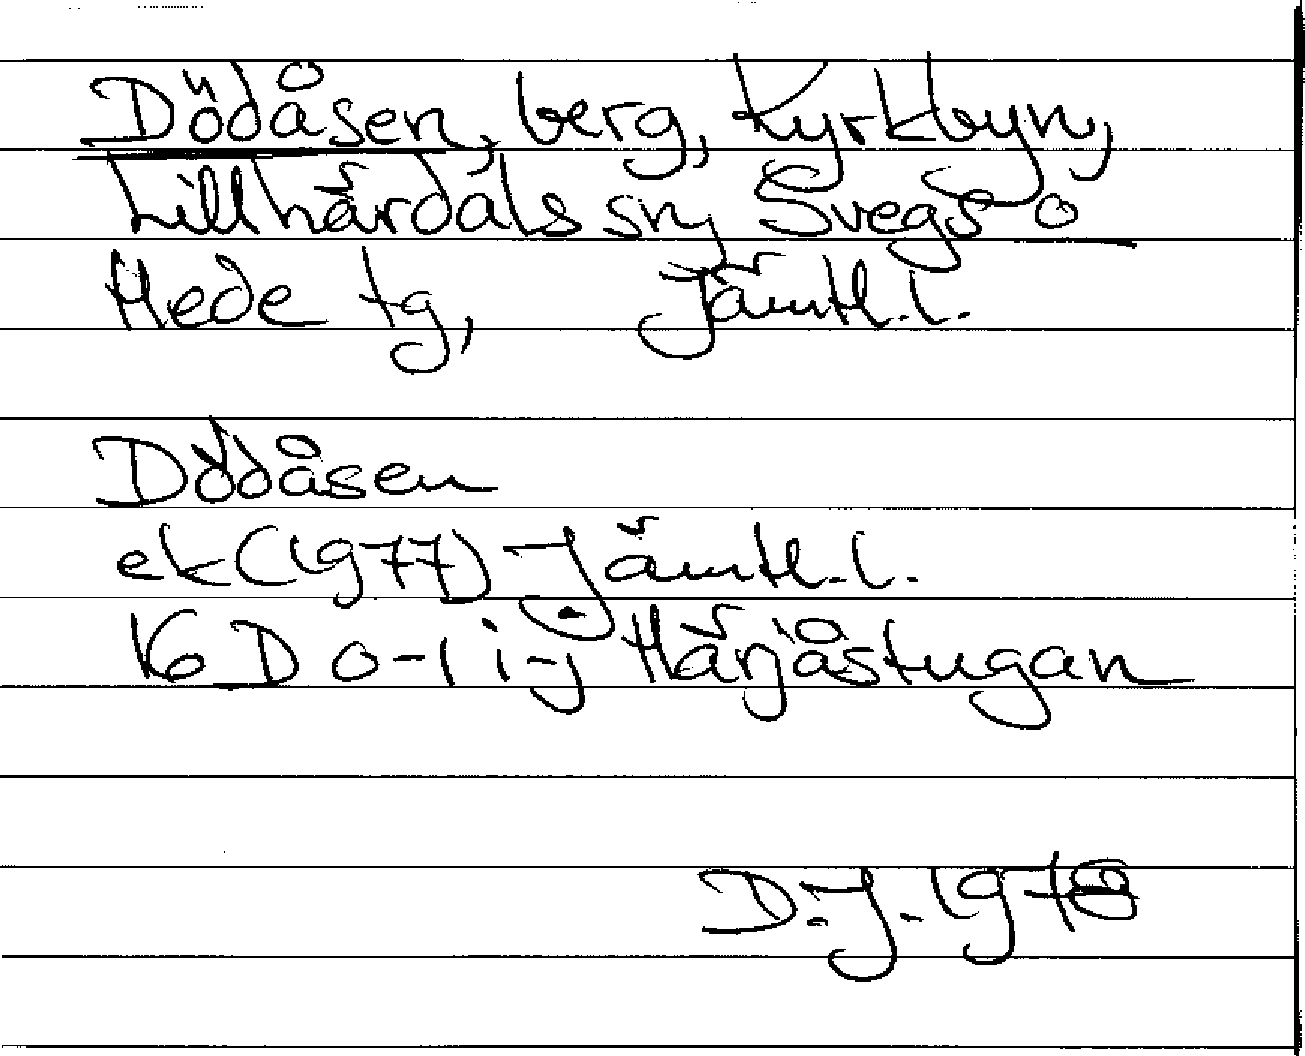 Dödåsen, berg, Kyrkbyn,
Lillhärdals sn, Svegs o
Hede tg, Jämtl.l.
Dödåsen
ek(1977) Jämtl.l.
16 D 0-1 i-j Härjåstugan
D.J. 1978